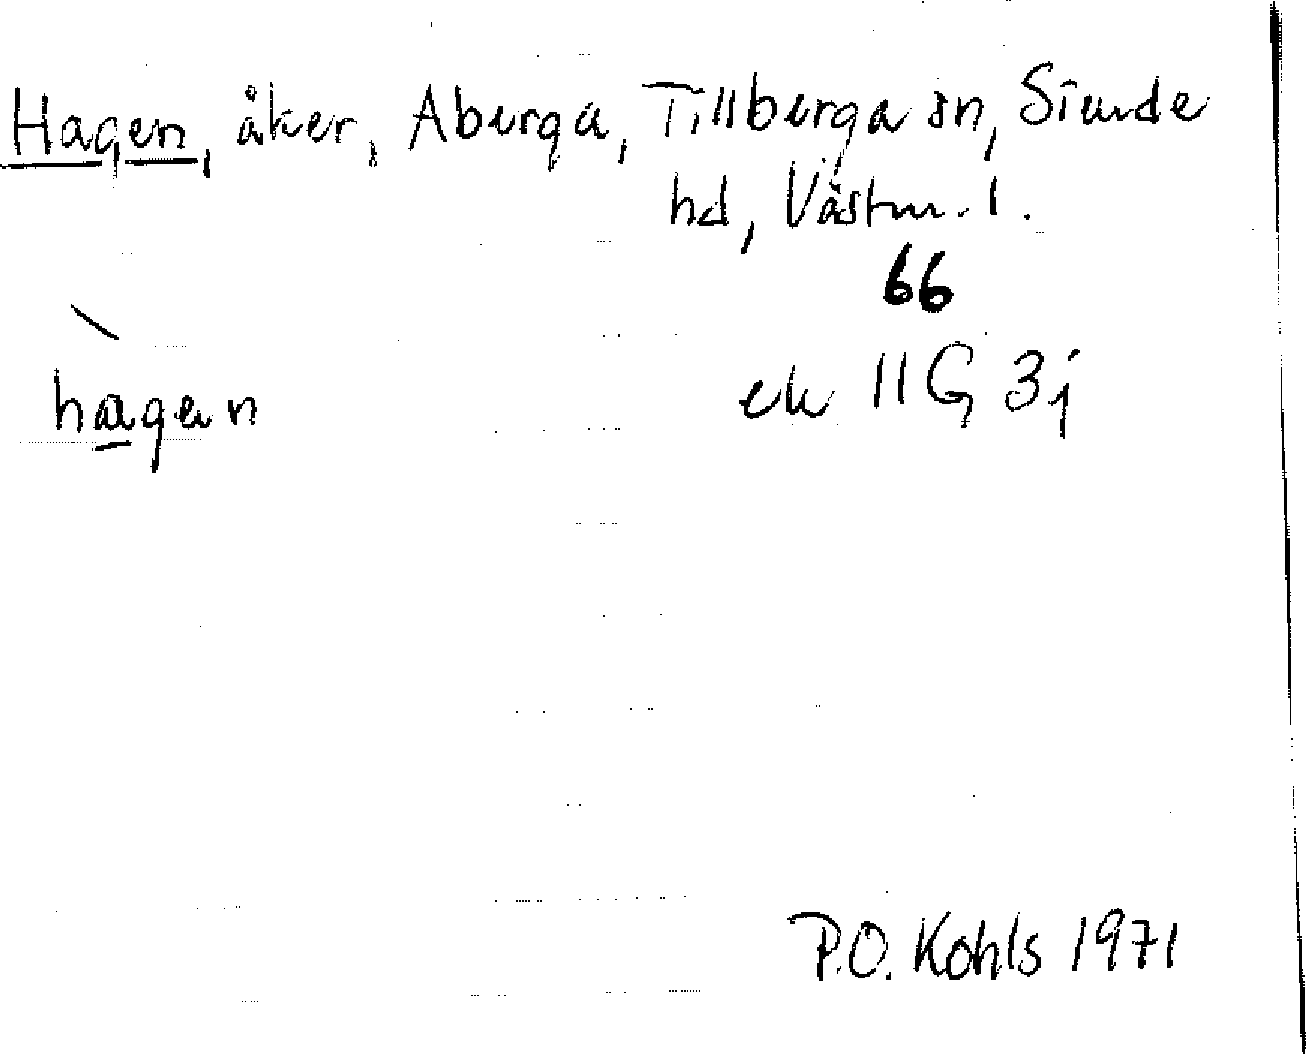 Hagen, åker, Aberga, Tillberga sn, Siende
hd, Västm. l.
66
hagen
ek 11G 3j
P.O. Kohls 1971